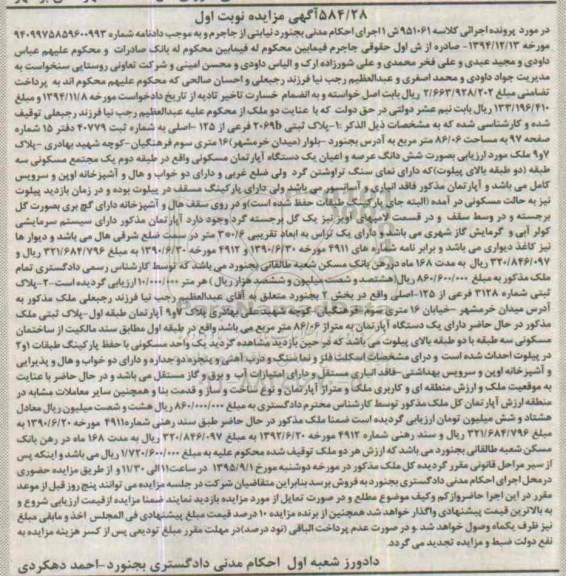 ۵۸۴/۲۸آگهی مزایده نوبت اول
در مورد پرونده اجرائی کلاسه ۹۵۱۰۶۱ش ۱ اجرای احکام مدنی بجنورد نیابتی از جاجرم و به موجب دادنامه شماره ۹۴۰۹۹۷۵۸۵۹۶۰۰۹۹۳
مورخه ۱۳۹۴/۱۲/۱۳- صادره از ش اول حقوقی جاجرم فیمابین محکوم له فیمابین محکوم له بانک صادرات و محکوم علیهم عباس
داودی و مجید عبدی و علی فخر محمدی و علی شورزاده ارک و الیاس داودی و محسن امینی و شرکت تعاونی روستایی سنخواست به
مدیریت جواد داودی و محمد اصغری و عبدالعظیم رجب نیا فرزند رجبعلی و احسان صالحی که محکوم علیهم محکوم اند به پرداخت
تضامنی مبلغ ۲/۶۶۳/۹۲۸/۲۰۲ ریال بابت اصل خواسته و به انضمام خسارت تاخیر تادیه از تاریخ دادخواست مورخه ۱۳۹۴/۱۱/۸ و مبلغ
۱۳۳/۱۹۶/۴۱۰ ریال بابت نیم عشر دولتی در حق دولت که با عنایت دو ملک از محکوم علیه عبدالعظیم رجب نیا فرزند رجبعلی توقیف
شده و کارشناسی شده که به مشخصات ذیل الذکر :۱-پلاک ثبتی ۲۰۶۹b فرعی از ۱۲۵ -اصلی به شماره ثبت ۴۰۷۷۹ دفتر ۱۵ شماره
صفحه ۹۷ به مساحت ۸۶/۰۶ متر مربع به آدرس بجنورد -بلوار (میدان خرمشهر)۱۶ متری سوم فرهنگیان-کوچه شهید بهادری -پلاک
۷و۹ ملک مورد ارزیابی بصورت شش دانگ عرصه و اعیان یک دستگاه آپارتمان مسکونی واقع در طبقه دوم یک مجتمع مسکونی سه
طبقه (دو طبقه بالای پیلوت)که دارای نمای سنگ تراوشتن گرد ولی ضلع غربی و دارای دو خواب و هال و آشپزخانه اوپن و سرویس
کامل می باشد و آپارتمان مذکور فاقد انباری و آسانسور می باشد ولی دارای پارکینگ مسقف در پیلوت بوده و در زمان بازدید پیلوت
نیز به حالت مسکونی در آمده (البته جای پارکینگ طبقات حفظ شده است)و در روی سقف هال و آشپزخانه دارای گچ بری بصورت گل
برجسته و در وسط سقف و در قسمت لامپهای آویز نیز یک گل برجسته گرد وجود دارد آپارتمان مذکور دارای سیستم سرمایشی
کولر آبی و گرمایش گاز شهری می باشد و دارای یک تراس به ابعاد تقریبی ۶×۳۰۰ متر در سمت ضلع شرقی هال می باشد و دیوار ها
نیز کاغذ دیواری می باشد و برابر نامه شماره های ۴۹۱۱ مورخه ۱۳۹۰/۶/۳۰ و ۴۹۱۲ مورخه ۱۳۹۰/۶/۳۰ به مبلغ ۳۲۱/۶۸۴/۷۹۶ ریال و
۳۲۰/۸۴۶/۰۹۷ ریال به مدت ۱۶۸ ماه در رهن بانک مسکن شعبه طالقانی بجنورد می باشد که توسط کارشناس رسمی دادگستری تمام
ملک مذکور به مبلغ ۸۶۰/۶۰۰/۰۰۰ ریال(هشتصد و شصت میلیون و ششصد هزار ریال) هر متر ۱۰/۰۰۰/۰۰۰ارزیابی گردیده است-۲-پلاک
ثبتی شماره ۳۱۲۸ فرعی از ۱۲۵-اصلی واقع در بخش ۲ بجنورد متعلق به آقای عبدالعظیم رجب نیا فرزند رجبعلی ملک مذکور به
آدرس میدان خرمشهر -خیابان ۱۶ متری سوم فرهنگیان -کوچه شهید علی بهادری پلاک ۷و۹ آپارتمان طبقه اول-پلاک ثبتی ملک
مذکور در حال حاضر دارای یک دستگاه آپارتمان به متراژ ۸۶/۰۶ متر مربع می باشد واقع در طبقه اول مطابق سند مالکیت از ساختمان
مسکونی سه طبقه با دو طبقه بالای پیلوت می باشد که در حین بازدید مشاهده گردید یک واحد مسکونی با حفظ پارکینگ طبقات (۱و۲
در پیلوت احداث شده است و درای مشخصات اسکلت فلز و نما سنگ و درب آهنی و پنجره دوجداره و دارای دو خواب و هال و پذیرایی
و آشپزخانه اوپن و سرویس بهداشتی-فاقد انباری مستقل و دارای امتیازات آب و برق و گاز مستقل می باشد و در حال حاضر با عنایت
به موقعیت ملک و ارزش منطقه ای و کاربری ملک و متراژ آپارتمان و نوع ساخت و ساز و قدمت بنا و همچنین سایر معاملات مشابه در
منطقه ارزش آپارتمان کل ملک مذکور توسط کارشناس محترم دادگستری به مبلغ ۸۶۰/۰۰۰/۰۰۰ ریال هشت و شصت میلیون ریال معادل
هشتاد و شش میلیون تومان ارزیابی گردیده است ضمنا ملک مذکور در حال حاضر طبق سند رهنی شماره۴۹۱۱ مورخه ۱۳۹۰/۶/۲۰ به
مبلغ ۳۲۱/۶۸۴/۷۹۶ ریال و سند رهنی شماره ۴۹۱۲ مورخه ۱۳۹۲/۶/۲۰ به مبلغ ۳۲۰/۸۴۶/۰۹۷ ریال به مدت ۱۶۸ ماه در رهن بانک
مسکن شعبه طالقانی بجنورد می باشد که ارزش هر دو ملک توقیف شده محکوم علیه به مبلغ ۱/۷۲۰/۶۰۰/۰۰۰ ریال می باشد و اینکه پس
از سیر مراحل قانونی مقرر گردیده کل ملک مذکور در مورخه دوشنبه مورخ ۱۳۹۵/۹/۱ در ساعت۱۱الی ۱۱/۳۰ و از طریق مزایده حضوری
درمحل اجرای احکام مدنی دادگستری بجنورد به فروش برسد بنابراین متقاضیان شرکت در جلسه مزایده می توانند پنج روز قبل از موعد
مقرر در این اجرا حاضر واز کم وکیف موضوع مطلع و در صورت تمایل از مورد مزایده بازدید نمایند ضمنا مزایده از قیمت ارزیابی شروع و
به بالاترین قیمت پیشنهادی واگذار خواهد شد همچنین از برنده مزایده ۱۰ درصد قیمت مبلغ پیشنهادی فی المجلس اخذ و مابقی مبلغ
نیز ظرف یکماه وصول خواهد شد .و در صورت عدم پرداخت الباقی (نود درصد)در مهلت مقرر مبلغ تودیعی پس از کسر هزینه مزایده به
نفع دولت ضبط و مزایده تجدید می گردد.
دادورز شعبه اول احکام مدنی دادگستری بجنورد-احمد دهکردی